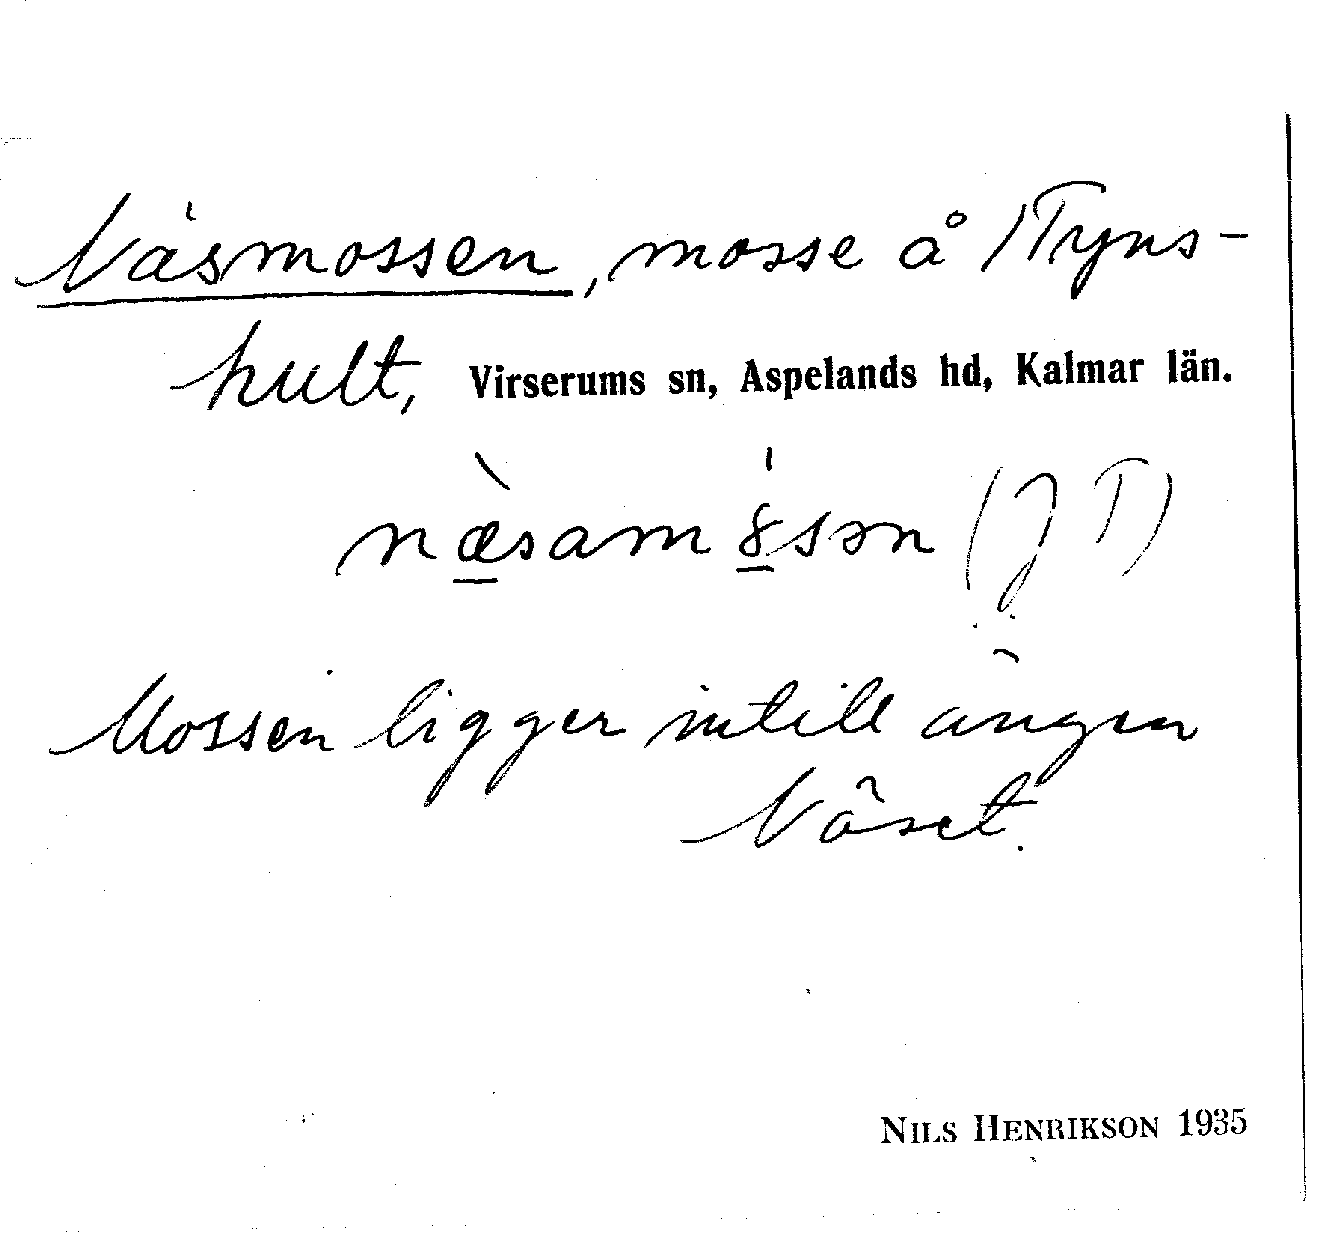 Näsmossen, mosse å Fryns-
hult, Virserums sn, Aspelands hd, Kalmar län.
næ̀samȣ́sən (J T)
Mossen ligger intill ängen
Näset.
NILS HENRIKSON 1935